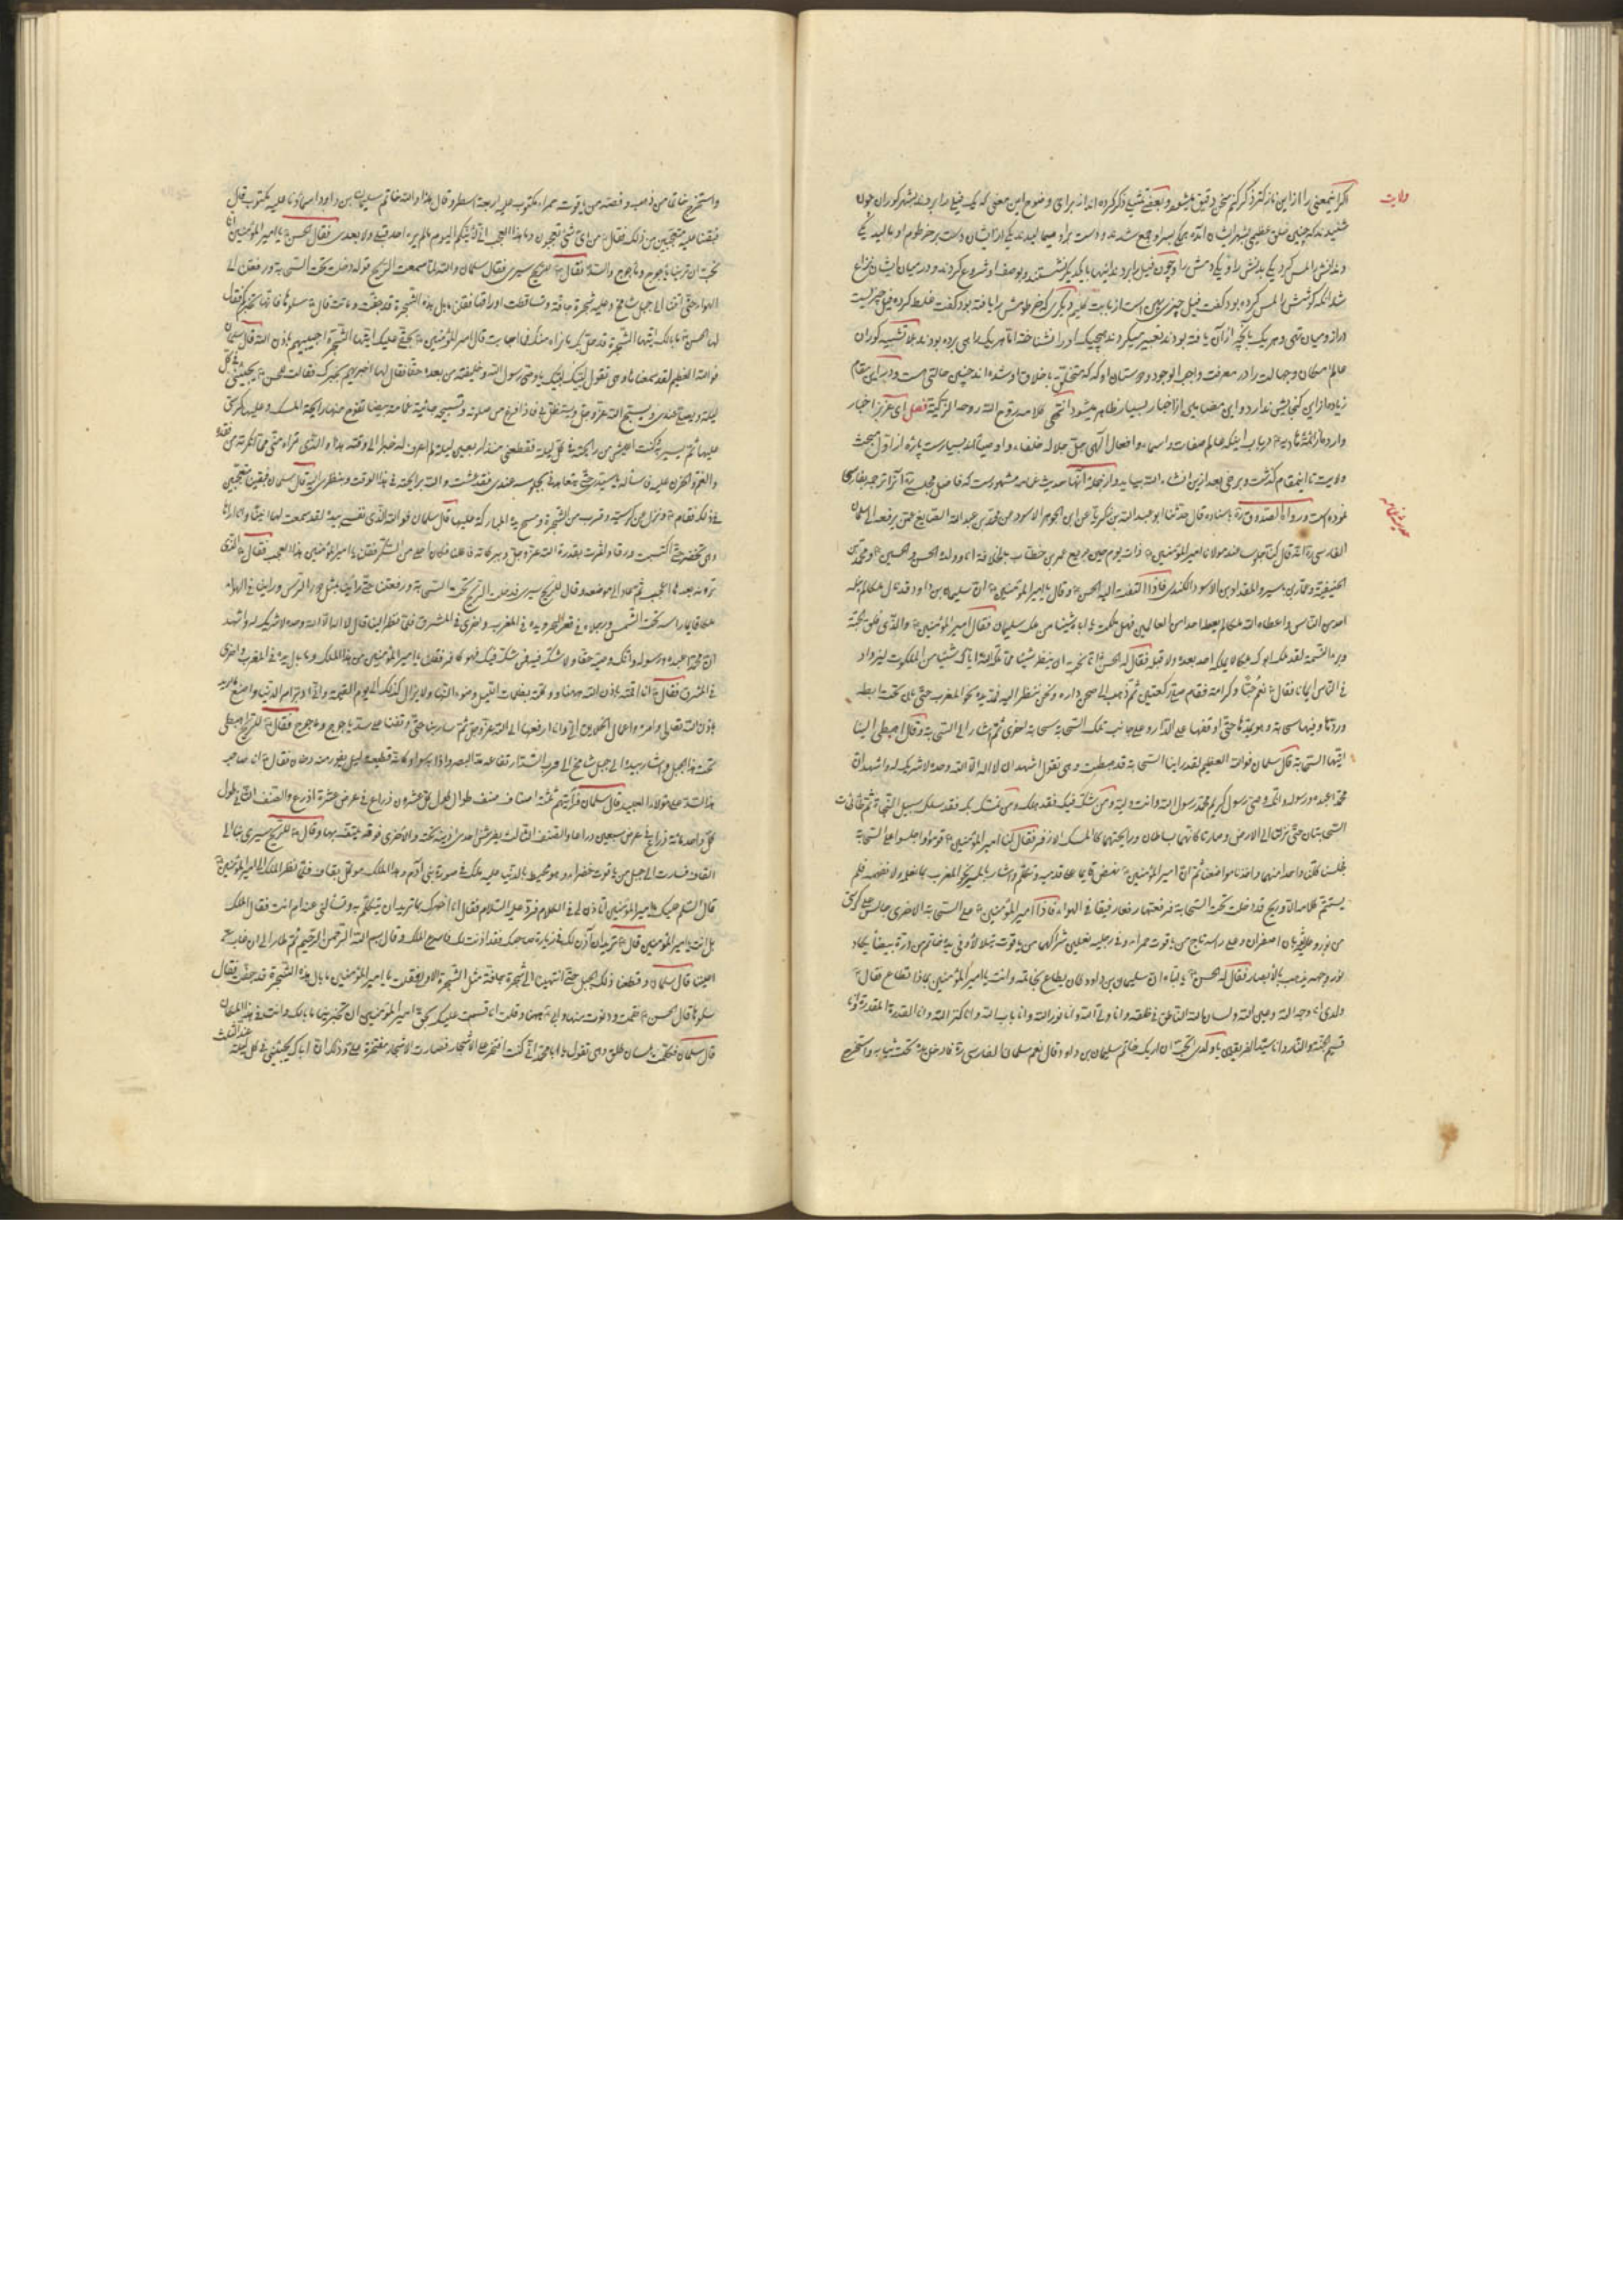 ولایت
اگر این معنی را از این نازکتر ذکر کنم سخن دقیق میشود و بعضی تشبیه ذکر کرده اند از برای وضوح این معنی که یک فیل را بردند بشهر کوران چون
شنیدند که چنین خلق عظیمی بشهر ایشان آمده همگی بسر او جمع شدند و دست بر او میمالیدند یکی از ایشان دست بر خرطوم او مالید یکی
دندانش را لمس کرد یکی بدنش را و یکی دمش را و چون فیل را بردند اینها با یکدیگر نشستند و بوصف او شروع کردند و در میان ایشان نزاع
شد آنکه گوشش را لمس کرده بود گفت فیل چیز پهن است از بابت گلیم دیگری که خرطومش را یافته بود گفت غلط کرده فیل چیزیست
دراز و میان تهی و هر یک بآنچه از آن یافته بودند تعبیر میکردند هیچیک او را نشناخته اما هر یک راهی برده بودند بلا تشبیه کوران
عالم امکان و جهالت را در معرفت واجب الوجود و دوستان او که متخلق باخلاق او شده اند چنین حالتی هست و در این مقام
زیاده از این گنجایش ندارد و این مضامین از اخبار بسیار ظاهر میشود انتهی کلامه روح الله روحه الزکیة فصل ای عزیز اخبار
وارده از ائمه هادیه در باب اینکه عالم صفات و اسماء و افعال الهی جل جلاله خلفاء و اوصیا اند بسیار است پاره از اول مبحث
ولایت تا اینمقام گذشت و برخی بعد از این انشاء الله بیاید و از جمله آنها حدیث غمامه مشهور است که فاضل مجلسی آنرا ترجمه بفارسی
نموده است و رواه الصدوق باسناده قال حدثنا ابو عبد الله بن زکریا عن ابن الجوهر الاسود عن محمد بن عبد الله الصایغ عن یرفعه الی سلمان
حدیث غمامه
الفارسی انه قال کنا جلوسا عند مولانا امیر المؤمنین ذات یوم حین بویع عمر بن خطاب بالخلافة انا وولده الحسن والحسین ومحمد بن
الحنفیة وعمار بن یاسر والمقداد بن الاسود الکندی فاذا التفت الیه الحسن وقال یا امیر المؤمنین ان سلیمان بن داود قد سال ملکا لم یعطه
احد من الناس واعطاه الله ملکا لم یعط احدا من العالمین فهل ملکت یا اباه شیئا من ملک سلیمان فقال امیر المؤمنین والذی فلق الحبة
وبرء النسمة لقد ملک ابوک ملکا لا یملکه احد بعده ولا قبله فقال له الحسن انا نحب ان ننظر شیئا مما ملکه الله ایاک شیئا من الملکوت لیزداد
فی الناس ایمانا فقال نعم حبا وکرامة فقام وصلی رکعتین ثم ذهب الی صحن داره ونحن ننظر الیه فمد یده نحو المغرب حتی
وردتا وفیها سحابة وهو یمدها حتی اوقفها علی الدار وعلی جانب تلک السحابة سحابة اخری ثم اشار الی السحابة وقال اهبطی الینا
ایتها السحابة قال سلمان فوالله العظیم لقد راینا السحابة قد هبطت وهی تقول اشهد ان لا اله الا الله وحده لا شریک له واشهد ان
محمدا عبده ورسوله وانک وصی رسول کریم محمد رسول الله وانت ولیه ومن شک فیک فقد هلک ومن تمسک بک فقد سلک سبیل النجاة ثم
السحابتان حتی نزلتا الی الارض وصارتا کانهما بساطان ورایحتهما کالمسک الاذفر فقال لنا امیر المؤمنین قوموا واجلسوا علی السحابة
فجلسنا کلنا واحدا منها واخذنا مواضعنا ثم ان امیر المؤمنین نهض قایما علی قدمیه وتکلم واشار بالمسیر نحو المغرب بما نعلم ولا نفهمه فلم
یستتم کلامه الا وریح قد دخلت تحت السحابة فرفعتها رفعا رفیقا فی الهواء فاذا امیر المؤمنین علی السحابة الاخری جالس علی کرسی
من نور وعلیه ثوبان اصفران وعلی راسه تاج من یاقوت حمراء وفی رجلیه نعلین شراکهما من یاقوت یتلالأ وفی یده خاتم من درة بیضاء یکاد
نور وجهه یذهب بالابصار فقال له الحسن یا اباه ان سلیمان بن داود کان یطاع بخاتمه وانت یا امیر المؤمنین بماذا تطاع فقال
ولدی انا وجه الله وعین الله ولسان الله الناطق فی خلقه وانا ولی الله وانا نور الله وانا باب الله وانا کنز الله وانا القدرة المقدرة وانا
قسیم الجنة والنار وانا سید الفریقین یا ولدی اتحب ان اریک خاتم سلیمان بن داود قال نعم سلمان الفارسی فادخل یده تحت ثیابه واستخرج
واستخرج خاتما من ذهب وفصه من یاقوت حمراء مکتوب علیه اربعة اسطر وقال هذا والله خاتم سلیمان بن داود اسماؤنا علیه مکتوب قال
فبقینا علیه متعجبین من ذلک فقال من ای شیء تعجبون وما هذا العجب انی لأرینکم الیوم ما لم یره احد قبلی ولا بعدی فقال الحسن یا امیر المؤمنین انا
نحب ان ترینا یاجوج وماجوج والسد فقال للریح سیری فقال سلمان والله لما سمعت الریح قوله دخلت تحت السحابة ورفعتنا الی
الهواء حتی اتتنا الی جبل شامخ وعلیه شجرة جافة وتساقطت اوراقها فقلنا ما بال هذه الشجرة قد جفت وماتت قال سلوها فانها تخبرکم فقال
لها الحسن ما بالک ایتها الشجرة قد حل بک ما نراه منک فما اجابت قال امیر المؤمنین بحقی علیک ایتها الشجرة اجیبیهم باذن الله قال سلمان
فوالله العظیم لقد سمعناها وهی تقول لبیک لبیک یا وصی رسول الله وخلیفته من بعده حقا فقال لها اخبریهم بخبرک فقالت للحسن یجیئنی فی کل
لیلة ویصلی عندی ویسبح الله عز وجل ویستظل بی فاذا فرغ من صلوته وتسبیحه جائته غمامة بیضا تفوح منها رایحة المسک وعلیها کرسی
علیها ثم یسیر به وکنت اعیش من رایحته فی کل لیلة فقطعنی منذ اربعین لیلة لم اعرف له خبرا الی وقته هذا والذی تراه منی مما انکرته من فقده
فی ذلک فقام ونزل عن کرسیه وقرب من الشجرة ومسح یده المبارکة علیها قال سلمان فوالله الذی نفسی بیده لقد سمعت لها انینا وانا اراها
وهی تخضر حتی اکتست ورقا واثمرت بقدرة الله عز وجل وببرکاته
ترونه بعد هذا اعجب ثم عاد الی موضعه وقال للریح سیری فدخلت الریح تحت السحابة ورفعتنا حتی راینا الدنیا مثل دور الترس وراینا فی الهواء
ملکا قایما راسه تحت الشمس ورجلاه فی قعر البحر ویده فی المغرب واخری فی المشرق فلما نظر الینا قال لا اله الا الله وحده لا شریک له واشهد
ان محمدا عبده ورسوله وانک وصیه حقا ولا شک فیه فمن شک فیک فهو کافر فقلنا یا امیر المؤمنین من هذا الملک وما بال یده فی المغرب واخری
فی المشرق فقال انا اقمته باذن الله ههنا ووکلته بظلمات اللیل وضوء النهار ولا یزال کذلک الی یوم القیمة وانی ادبر امر الدنیا واصنع ما ارید
باذن الله تعالی وامره واعمال الخلایق الی وانا ارفعها الی الله عز وجل ثم سار بنا حتی وقفنا علی سد یاجوج وماجوج فقال للریح اهبطی
تحت هذا الجبل واشار بیده الی جبل شامخ الی قرب السد ارتفاعه مد البصر واذا به سواد کانه قطیعة لیل یفور منه دخان فقال انا صاحب
هذا السد علی هؤلاء العبید قال سلمان فرأیتهم ثلثة اصناف صنف طوال طول کل عشرون ذراع فی عرض عشرة اذرع والصنف الثانی طول
کل واحد مائة ذراع فی عرض سبعین ذراعا والصنف الثالث یفرش احدی اذنیه تحته والاخری فوقه یلتحف بها وقال للریح سیری بنا الی
القاف فسارت الی جبل من یاقوت خضراء وهو محیط بالدنیا علیه ملک فی صورة بنی آدم وهذا الملک موکل بقاف فلما نظر الملک الی امیر المؤمنین
قال السلام علیک یا امیر المؤمنین اتاذن لی فی الکلام فرد علیه السلام فقال انا اخبرک بما ترید ان تتکلم به وتسألنی عنه ام انت فقال الملک
بل انت یا امیر المؤمنین قال ترید ان آذن لک فی زیارة صاحبک فقد اذنت لک فاسرع الملک وقال بسم الله الرحمن الرحیم ثم طار الی ان غاب عن
اعیننا قال سلمان وقطعنا ذلک الجبل حتی انتهینا الی شجرة جافة مثل الشجرة الاولی فقلت یا امیر المؤمنین ما بال هذه الشجرة قد جفت فقال
سلوها قال الحسن فقمت ودنوت منها وقلت اقسمت علیک بحق امیر المؤمنین ان تخبرینا ما بالک وانت فی هذا المکان
قال سلمان فتکلمت بلسان طلق وهی تقول یا ابا محمد انی کنت افتخر علی الاشجار فصارت الاشجار مفتخرة علی وذلک ان اباک یجیئنی فی کل لیلة
عند الثلث